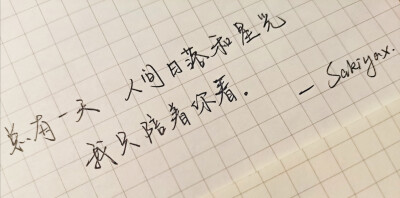 总有一天 人间日落和星光
我只陪着你看. — Sakiyax.